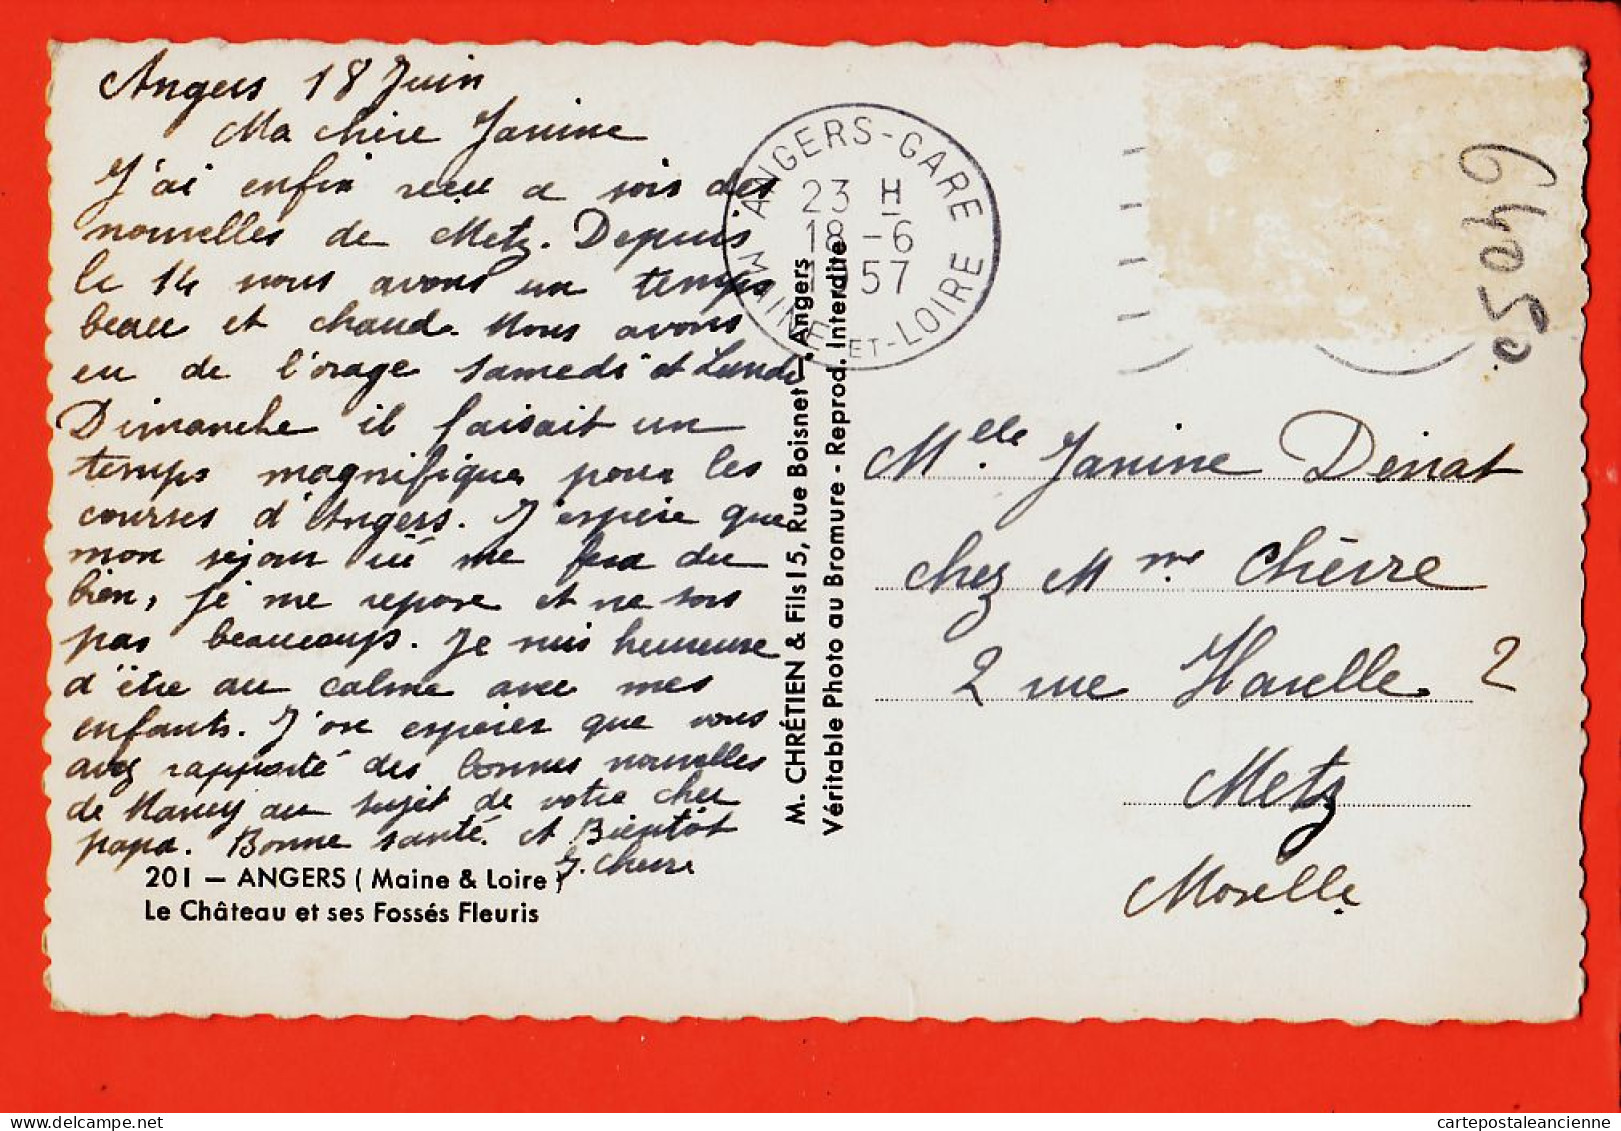 Angers 18 Juin
Ma chère Janine
J'ai enfin reçu ce soir des
nouvelles de Metz. Depuis
le 14 nous avons un temps
beau et chaud. Nous avons
eu de l'orage samedi et Lundi
Dimanche il faisait un
temps magnifique pour les
courses d'Angers. J'espère que
mon séjour ici me fera du
bien, je me repose et ne sors
pas beaucoup. Je suis heureuse
d'être au calme avec mes
enfants. J'ose espérer que vous
avez rapporté des bonnes nouvelles
de Nancy au sujet de votre cher
papa. Bonne santé. A Bientôt
J. Chèvre
201 — ANGERS ( Maine & Loire )
Le Château et ses Fossés Fleuris
M. CHRÉTIEN & Fils 15, Rue Boisnet - Angers
Véritable Photo au Bromure - Reprod. Interdite
ANGERS-GARE
23 H
18 -6
1957
MAINE-ET-LOIRE
6405
Melle Janine Denat
chez Mme Chèvre
2 rue Harelle 2
Metz
Moselle
cartepostaleancienne